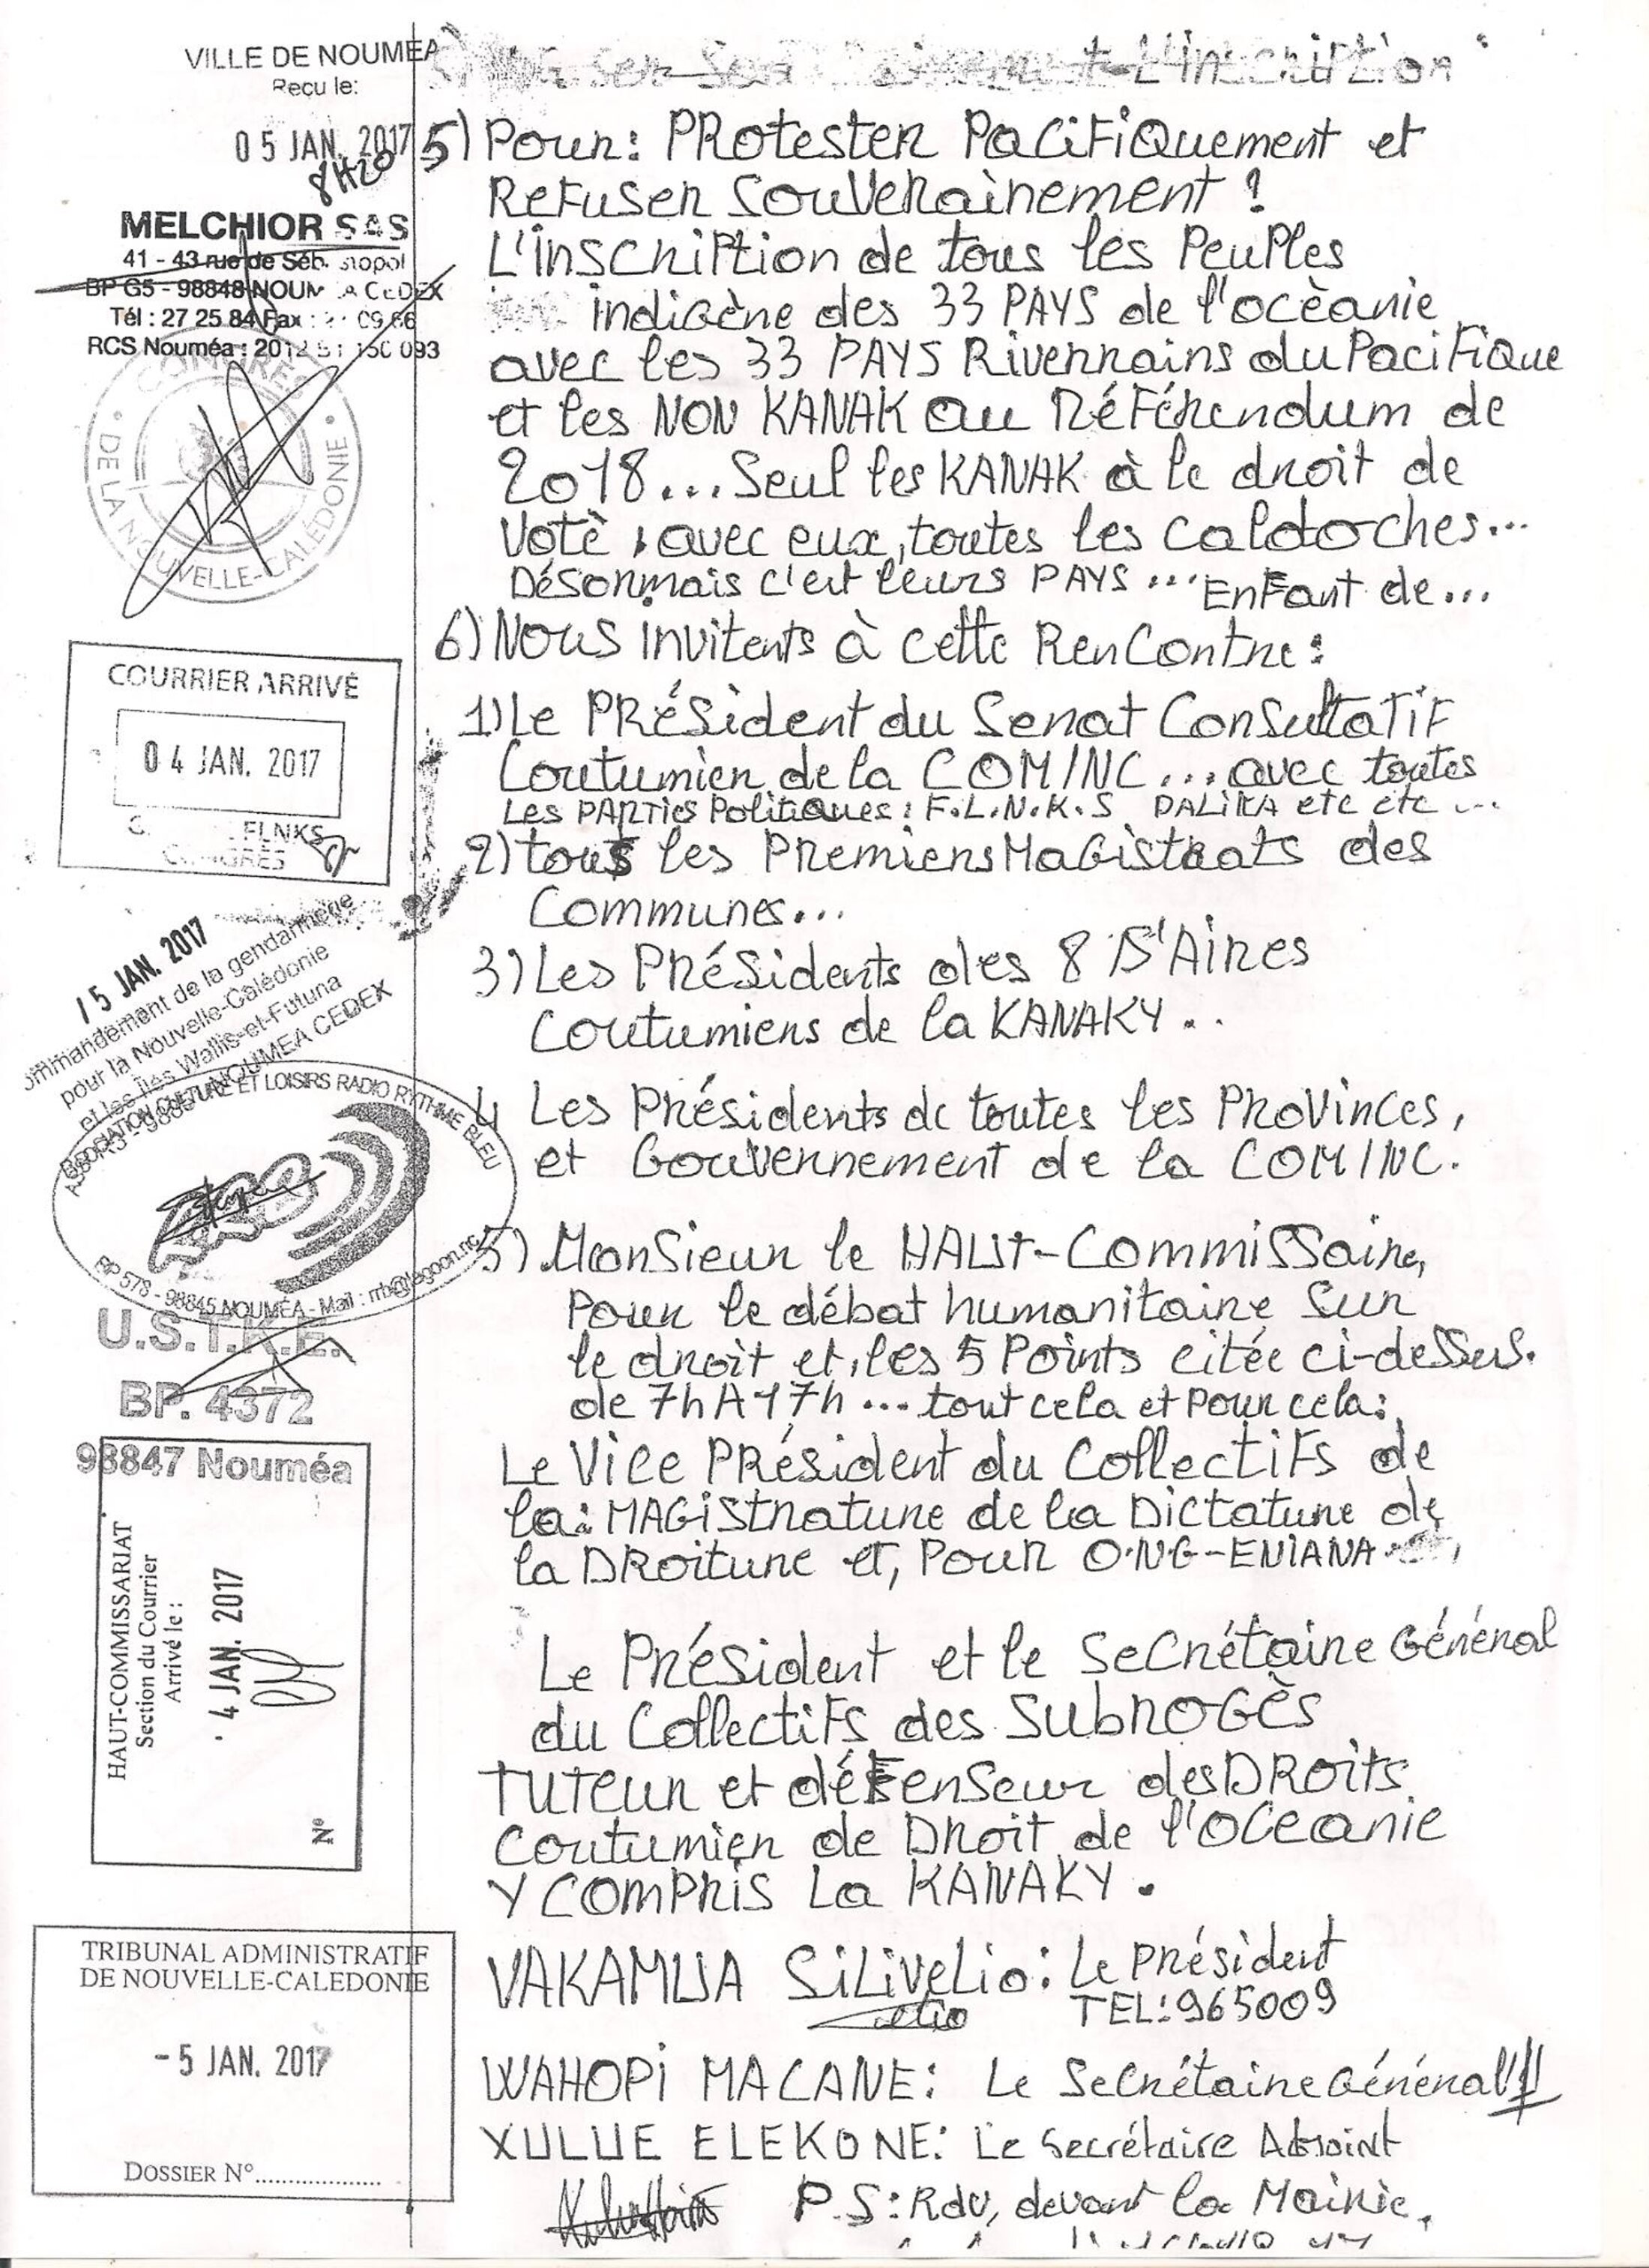 VILLE DE NOUMEA
Reçu le:
05 JAN. 2017
8H20
MELCHIOR SAS
41 - 43 rue de Séb
BP G5 - 98848 NOUM A CEDEX
Tél : 27 25 84 Fax
RCS Nouméa : 2012
CONGRES
DE LA NOUVELLE-CALÉDONIE
COURRIER ARRIVÉ
04 JAN. 2017
FLNKS
CONGRES
5 JAN. 2017
ommandement de la gendarmerie
pour la Nouvelle-Calédonie
et les îles Wallis-et-Futuna
NOUMEA CEDEX
ASSOCIATION CULTURE ET LOISIRS RADIO RYTHME BLEU
BP 578 - 98845 NOUMÉA - Mail : rrb@lagoon.nc
U.S.T.K.E.
BP. 4372
98847 Nouméa
HAUT-COMMISSARIAT
Section du Courrier
Arrivé le :
4 JAN. 2017
N°
TRIBUNAL ADMINISTRATIF
DE NOUVELLE-CALEDONIE
- 5 JAN. 2017
DOSSIER N°...................
L'inscription
5) Pour: PRotester PaciFiQuement et
ReFuser SouVerainement !
L'inscription de tous les PeuPles
indigène des 33 PAYS de l'ocèanie
avec les 33 PAYS Riverrains du PaciFique
et les NON KANAK au RéFérendum de
2018... Seul les KANAK à le droit de
Votè, avec eux, toutes les caldoches...
Désormais c'est leurs PAYS ... EnFant de...
6) Nous invitents à cette RenContre:
1) Le PRéSident du Senat ConsultaTiF
Coutumier de la COMINC... avec toutes
Les PARTies Politiques: F.L.N.K.S DALIKA etc etc ...
2) tous les PremiersMaGistrats des
Communes...
3) Les PréSidents des 8 D'Aires
Coutumiens de la KANAKY..
4 Les Présidents de toutes les ProVinces,
et Gouvernement de la COMINC.
5) MonSieur le HAUt-CommiSSaire,
Pour le débat humanitaire Sur
le droit et, les 5 Points citée ci-deSSus.
de 7h A 17h ... tout cela et Pour cela:
Le Vice PRésident du CollectiFs de
la: MAGiStrature de la Dictature de
la DRoiture et, Pour O.N.G-ENIANA
Le PréSident et le SeCrétaire Général
du CollectiFs des SubroGès
TuTeur et déFenSeur des DRoits
Coutumier de Droit de l'Oceanie
Y ComPris La KANAKY.
VAKAMUA SiLiVeLio: Le Président
TEL: 965009
WAHOPi MACANE: Le SeCrétaire Général
XULUE ELEKONE: Le Secrétaire Adjoint
P.S: Rdv, devant la Mairie.